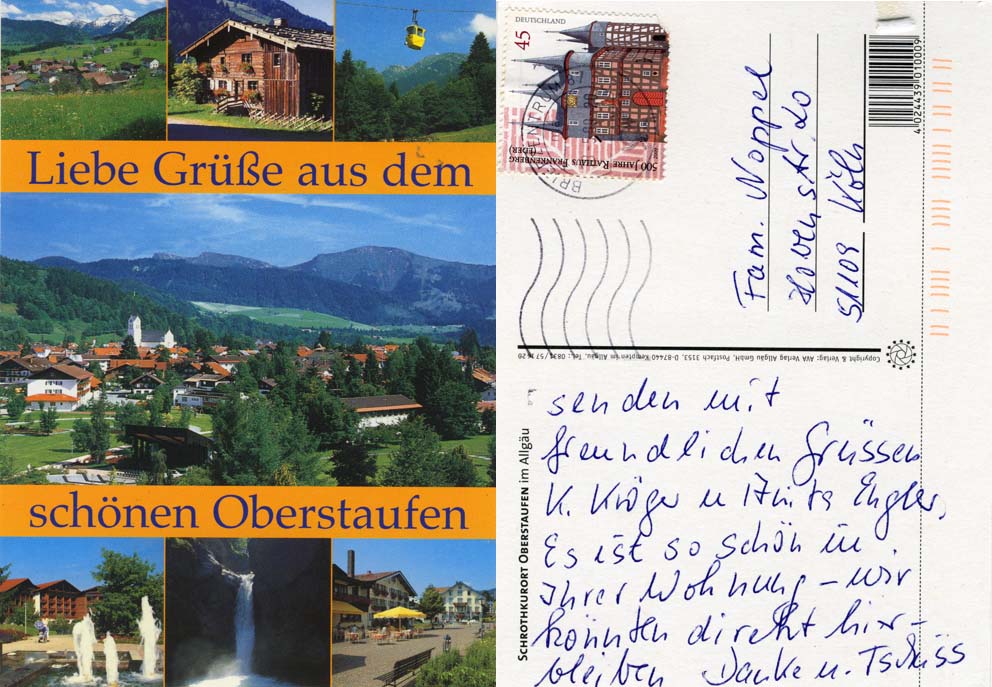 Liebe Grüße aus dem
schönen Oberstaufen
DEUTSCHLAND
45
500 JAHRE RATHAUS FRANKENBERG
(EDER)
BRIEFZENTRUM
Fam. Noppel
51109 Köln
4 024439 010009
Copyright & Verlag: AVA Verlag Allgäu GmbH, Postfach 3153, D-87440 Kempten im Allgäu, Tel.: 0831/57
SCHROTHKURORT OBERSTAUFEN im Allgäu
senden mit
freundlichen Grüssen
K. Kröger u Anita Engler,
Es ist so schön in
Ihrer Wohnung – wir
könnten direkt hier-
bleiben Danke u. Tschüss